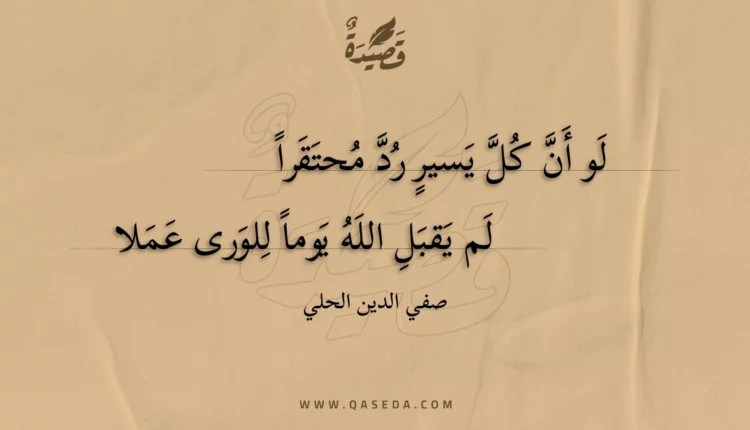 قَصِيدَةٌ
لَو أَنَّ كُلَّ يَسيرٍ رُدَّ مُحتَقَراً
لَم يَقبَلِ اللَهُ يَوماً لِلوَرى عَمَلا
صفي الدين الحلي
WWW.QASEDA.COM